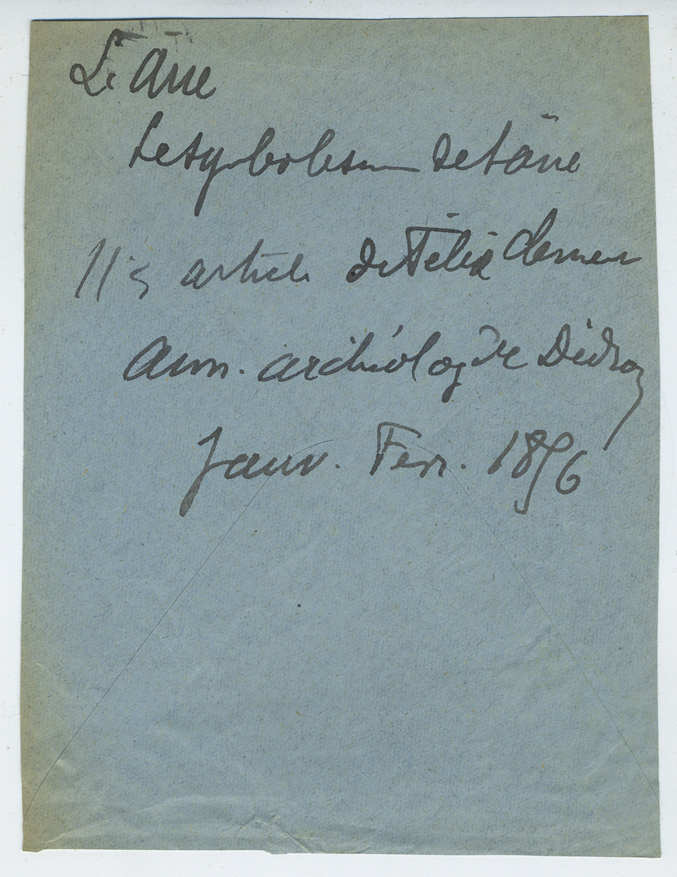 L'Ane
Le symbolisme de l'âne
article de Félix Clemen
Ann. archéologique Didron
Janv. Fevr. 1856